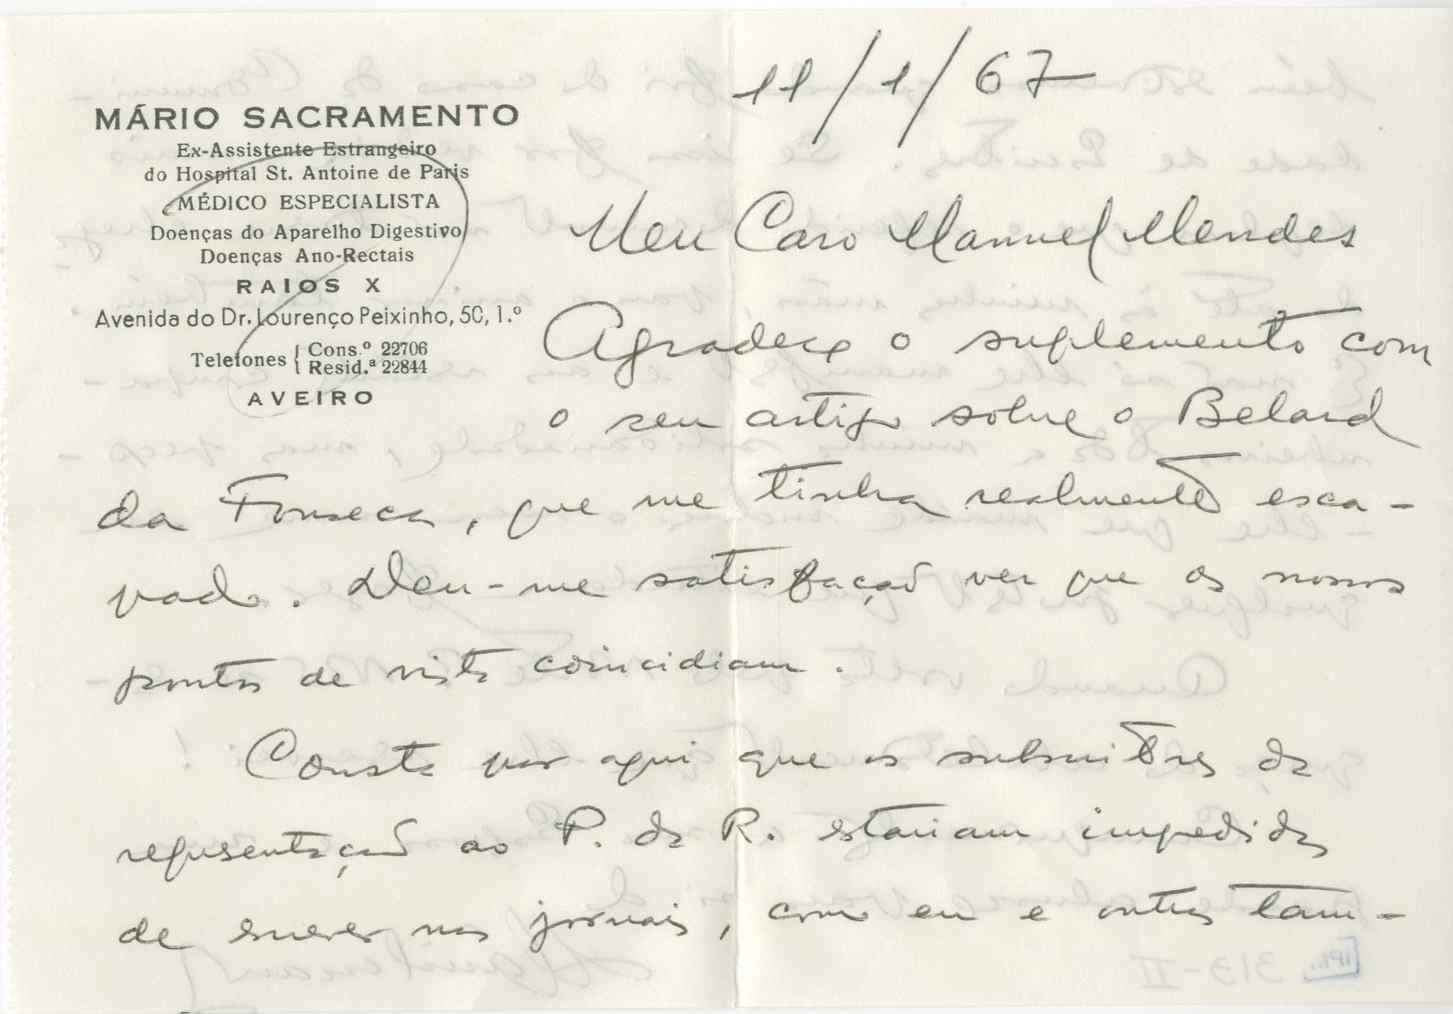 MÁRIO SACRAMENTO
Ex-Assistente Estrangeiro
do Hospital St. Antoine de Paris
MÉDICO ESPECIALISTA
Doenças do Aparelho Digestivo
Doenças Ano-Rectais
RAIOS X
Avenida do Dr. Lourenço Peixinho, 50, 1.º
Telefones { Cons.º 22706
Resid.ª 22844
AVEIRO
11/1/67
Meu Caro Manuel Mendes
Agradeço o suplemento com
o seu artigo sobre o Belard
da Fonseca, que me tinha realmente esca-
pado. Deu-me satisfação ver que os nossos
pontos de vista coincidiam.
Consta por aqui que os subscritores da
representação ao P. da R. estariam impedidos
de escrever nos jornais, como eu e outros tam-
313-II